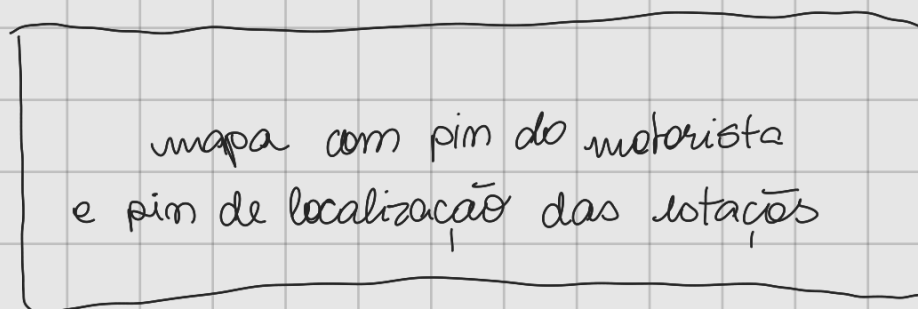 mapa com pin do motorista
e pin de localização das estaçõs